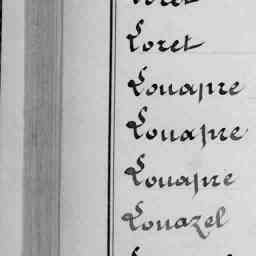 Loret
Louapre
Louapre
Louapre
Louazel